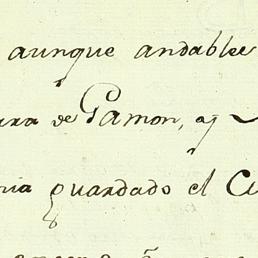 aunque andable
ura de Gamon, aq
ria guardado el Cu